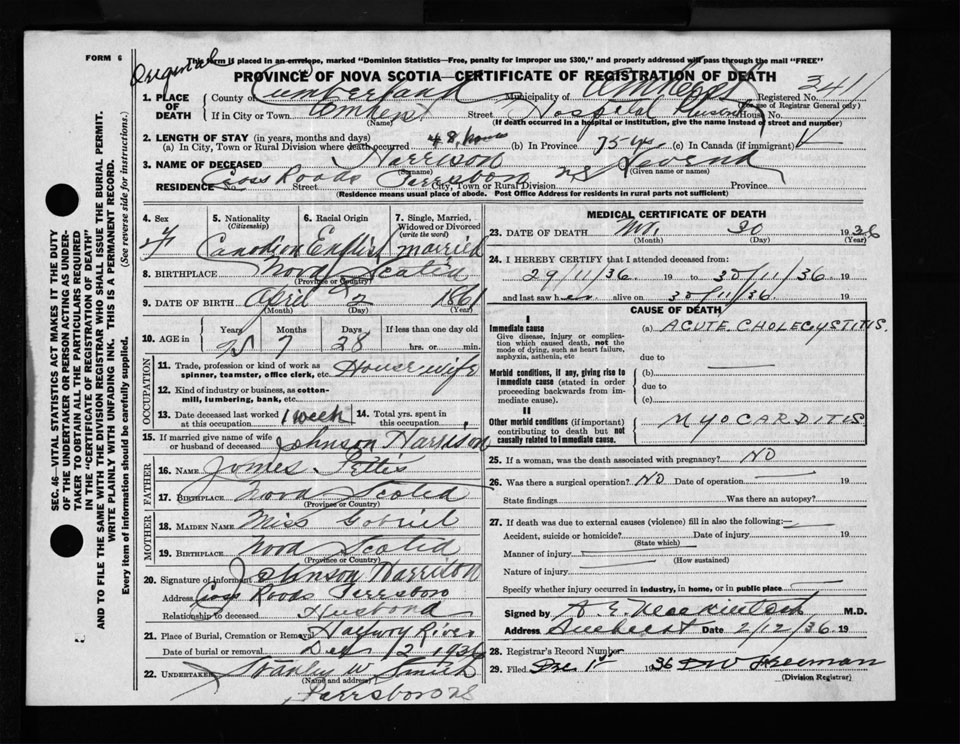 FORM 6
Original
This form is placed in an envelope, marked "Dominion Statistics—Free, penalty for improper use $300," and properly addressed will pass through the mail "FREE"
PROVINCE OF NOVA SCOTIA—CERTIFICATE OF REGISTRATION OF DEATH
1. PLACE OF DEATH County of Cumberland Municipality of Amherst Registered No. 3411
(For use of Registrar General only)
If in City or Town Amherst Street Hospital House No.
(Name) (If death occurred in a hospital or institution, give the name instead of street and number)
2. LENGTH OF STAY (in years, months and days)
(a) In City, Town or Rural Division where death occurred 48 hours (b) In Province 75 yrs (c) In Canada (if immigrant)
3. NAME OF DECEASED Harrison
(Surname) (Given name or names)
RESIDENCE No. Cross Roads Street Parrsboro City, Town or Rural Division NS Province
(Residence means usual place of abode. Post Office Address for residents in rural parts not sufficient)
4. Sex F
5. Nationality (Citizenship) Canadian
6. Racial Origin English
7. Single, Married, Widowed or Divorced (write the word) married
8. BIRTHPLACE Nova Scotia
(Province or Country)
9. DATE OF BIRTH April 2 1861
(Month) (Day) (Year)
10. AGE in Years 75 Months 7 Days 28 If less than one day old hrs. or min.
OCCUPATION
11. Trade, profession or kind of work as spinner, teamster, office clerk, etc. Housewife
12. Kind of industry or business, as cotton-mill, lumbering, bank, etc.
13. Date deceased last worked at this occupation 1 week 14. Total yrs. spent in this occupation
15. If married give name of wife or husband of deceased Johnson Harrison
FATHER
16. NAME James Pettis
17. BIRTHPLACE Nova Scotia
(Province or Country)
MOTHER
18. MAIDEN NAME Miss Gabriel
19. BIRTHPLACE Nova Scotia
(Province or Country)
20. Signature of informant Johnson Harrison
Address Cross Roads Parrsboro
Relationship to deceased Husband
21. Place of Burial, Cremation or Removal Halfway River
Date of burial or removal Dec 12 1936
22. UNDERTAKER Stanley W Smith
(Name and address)
Parrsboro NS
MEDICAL CERTIFICATE OF DEATH
23. DATE OF DEATH Nov. 30 1936
(Month) (Day) (Year)
24. I HEREBY CERTIFY that I attended deceased from:
29/11/36 19 to 30/11/36 19
and last saw her alive on 30/11/36. 19
CAUSE OF DEATH
I
Immediate cause
Give disease, injury or complication which caused death, not the mode of dying, such as heart failure, asphyxia, asthenia, etc
(a) ACUTE CHOLECYSTITIS.
due to
Morbid conditions, if any, giving rise to immediate cause (stated in order proceeding backwards from immediate cause).
(b)
due to
(c)
II
Other morbid conditions (if important) contributing to death but not causally related to immediate cause.
MYOCARDITIS
25. If a woman, was the death associated with pregnancy? NO
26. Was there a surgical operation? NO Date of operation
State findings Was there an autopsy?
27. If death was due to external causes (violence) fill in also the following:
Accident, suicide or homicide? Date of injury 19
(State which)
Manner of injury
(How sustained)
Nature of injury
Specify whether injury occurred in industry, in home, or in public place
Signed by A. E. Mackintosh M.D.
Address Amherst Date 2/12/36 19
28. Registrar's Record Number
29. Filed Dec 1st 1936 Freeman
(Division Registrar)
SEC. 46—VITAL STATISTICS ACT MAKES IT THE DUTY OF THE UNDERTAKER OR PERSON ACTING AS UNDERTAKER TO OBTAIN ALL THE PARTICULARS REQUIRED IN THE "CERTIFICATE OF REGISTRATION OF DEATH" AND TO FILE THE SAME WITH THE DIVISION REGISTRAR WHO SHALL ISSUE THE BURIAL PERMIT.
WRITE PLAINLY WITH UNFADING INK. THIS IS A PERMANENT RECORD.
Every item of information should be carefully supplied. (See reverse side for instructions.)